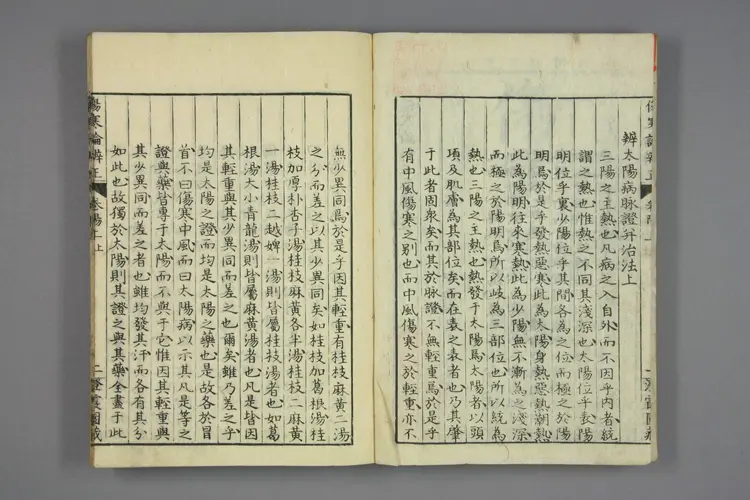 辨太陽病脉證并治法上
三陽之主熱也凡病之入自外而不因乎内者統
謂之熱也惟熱之不同其淺深也太陽位乎表陽
明位乎裏少陽位乎其間各為之位而極之於陽
明焉於是乎發熱惡寒此為太陽身熱惡熱潮熱
此為陽明往來寒熱此為少陽無不漸為之淺深
而極之於陽明焉所以岐為三部位也所以統為
熱也三陽之主熱也熱發于太陽焉太陽者以頭
項及肌膚為其部位矣而在表之表者也乃其肇
于此者固衆矣而其於脉證不無輕重焉於是乎
有中風傷寒之別也而中風傷寒之於輕重亦不
無少異同焉於是乎因其輕重有桂枝麻黄二湯
之分而差之以其少異同矣如桂枝加葛根湯桂
枝加厚朴杏子湯桂枝麻黄各半湯桂枝二麻黄
一湯桂枝二越婢一湯則皆屬桂枝湯者也如葛
根湯大小青龍湯則皆屬麻黄湯者也凡是皆因
其輕重與其少異同而差之也爾矣雖乃差之乎
均是太陽之證而均是太陽之藥也是故各於冒
首不曰傷寒中風而曰太陽病以示其凡是等之
證與藥皆專于太陽而不與于它惟因其輕重與
其少異同而差之者也雖均發其汗而各有其分
如此也故獨於太陽則其證之與其藥全盡于此
傷寒論辨正